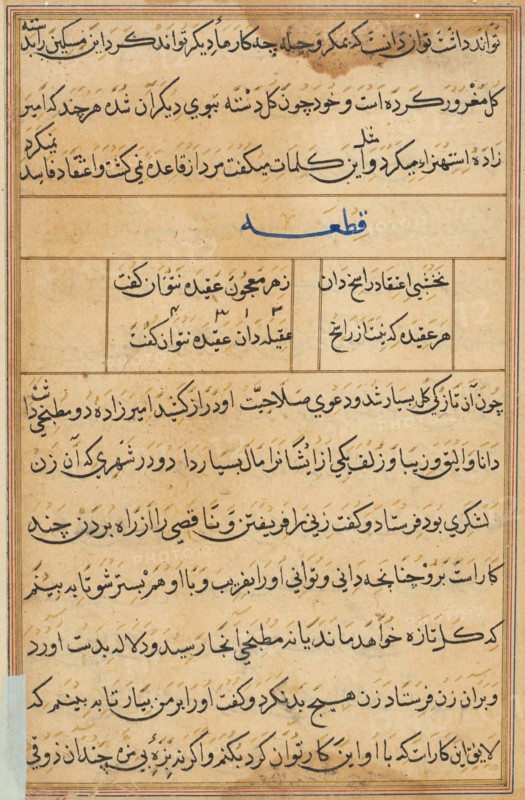 تواند داشت توان دانست که بمکر و حیله چه کارهاء دیکر تواند کرد این مسکین را بدسته
کل مغرور کرده است و خود چون کل دسته ببوی دیکران شده هر چند که امیر
زاده استهزاء میکرد و این مثل کلمات میکفت مرد از قاعده نمی کشت و اعتقاد فاسد نمیکرد
قطعه
نخشبی اعتقاد راسخ دان
زهر معجون عقیده نتوان کفت
هر عقیده که نیست آن راسخ
عقیله دان عقیده نتوان کفت
چون آن تازکی کل بسیار شد و دعوی صلاحیت او دراز کشید امیرزاده دو مطبخی داشت
دانا و الیق و زیبا و زلف یکی را از ایشانرا مال بسیار داد و در شهری که آن زن
لشکری بود فرستاد و کفت زنی را فریفتن و ناقصی را از راه بردن چند
کار است برو چنانچه دانی و توانی او را بفریب و با او هم بستر شو تا به بینم
که کل تازه خواهد ماند یا نه مطبخی آنجا رسید و دلاله بدست آورد
و بران زن فرستاد زن هیچ بد نکرد و کفت او را بر من بیار تا به بینم که
لایق این کار است که با او این کار توان کرد بکنم و اکر نه بزهٔ بی مزه چندان ذوقی